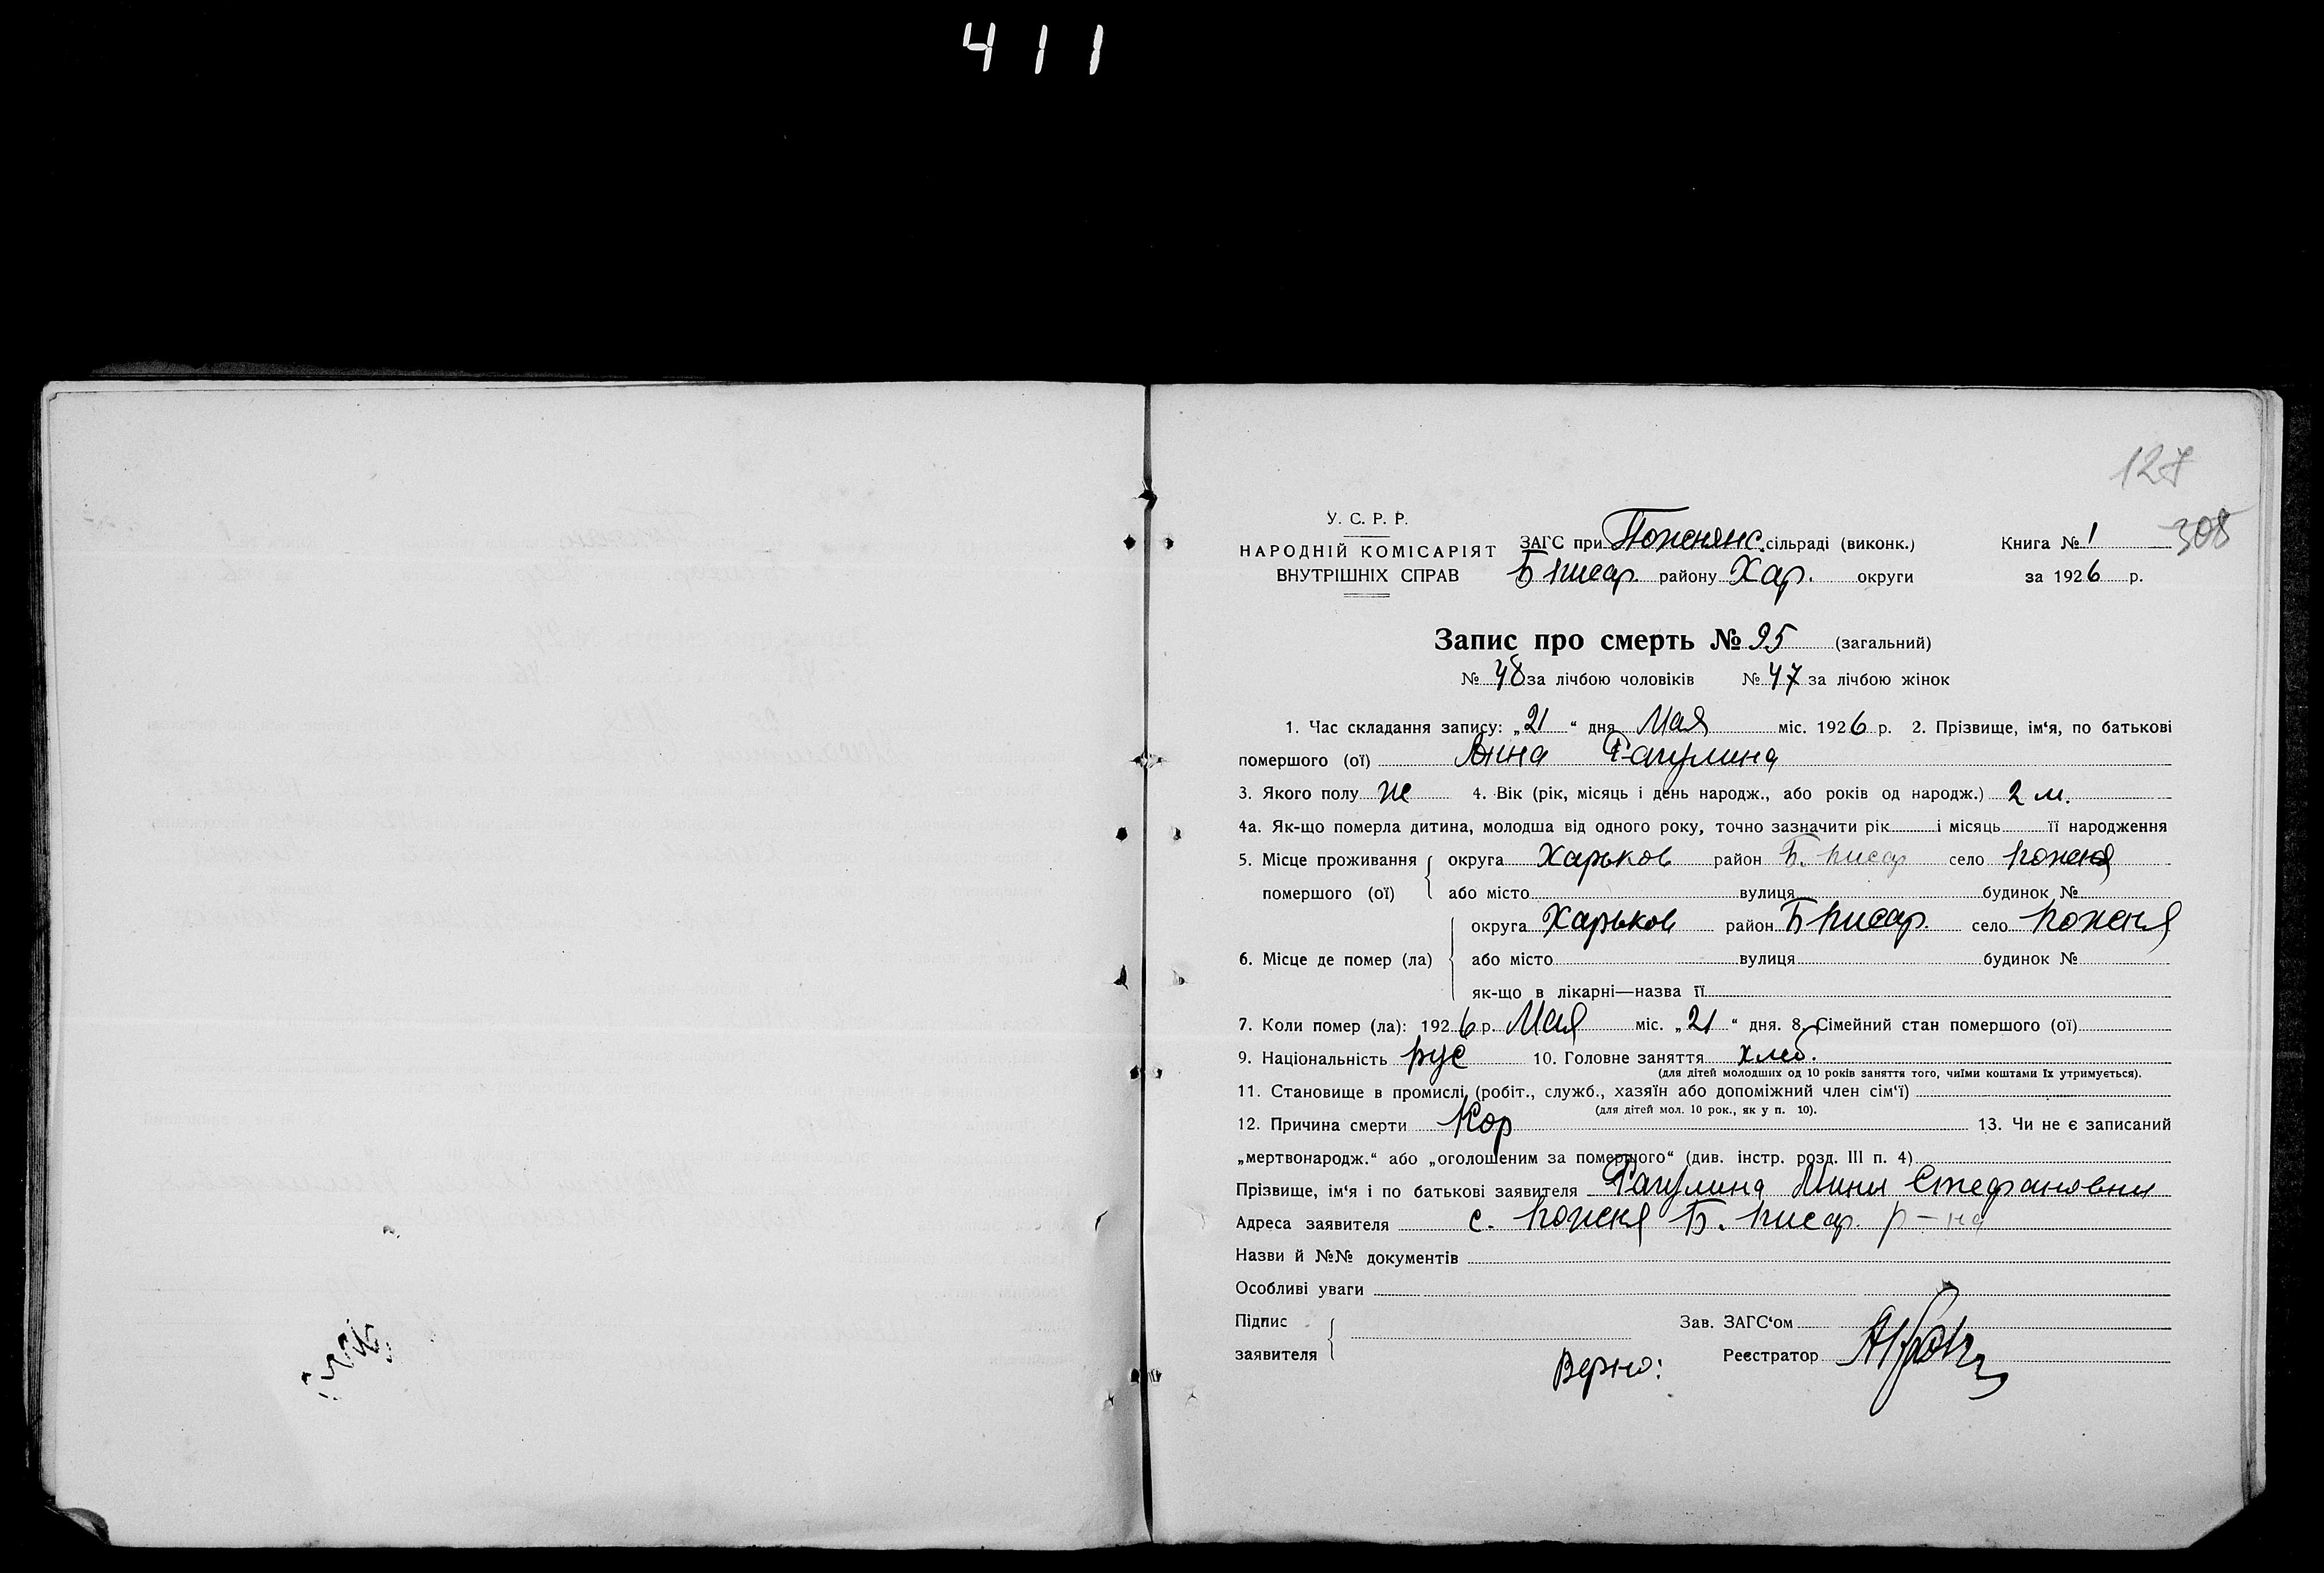 411
127
308
У. С. Р. Р.
НАРОДНІЙ КОМІСАРІЯТ
ВНУТРІШНІХ СПРАВ
ЗАГС при Пожнянс. сільраді (виконк.)
Б писар. району Хар. округи
Книга № 1
за 1926 р.
Запис про смерть № 95 (загальний)
№ 48 за лічбою чоловіків № 47 за лічбою жінок
1. Час складання запису: „21“ дня Мая міс. 1926 р. 2. Прізвище, ім‘я, по батькові
помершого (ої) Анна Рагулина
3. Якого полу Ж 4. Вік (рік, місяць і день народж., або років од народж.) 2 м.
4а. Як-що померла дитина, молодша від одного року, точно зазначити рік і місяць її народження
5. Місце проживання округа Харьков район Б. писар село пожня
помершого (ої) або місто вулиця будинок №
округа Харьков район Б писар. село пожня
6. Місце де помер (ла) або місто вулиця будинок №
як-що в лікарні—назва її
7. Коли помер (ла): 1926 р. Мая міс. „21“ дня. 8. Сімейний стан помершого (ої)
9. Національність рус 10. Головне заняття хлеб.
(для дітей молодших од 10 років заняття того, чиїми коштами їх утримується).
11. Становище в промислі (робіт., служб., хазяїн або допоміжний член сім‘ї)
(для дітей мол. 10 рок., як у п. 10).
12. Причина смерти Кор 13. Чи не є записаний
„мертвонародж.“ або „оголошеним за померлого“ (див. інстр. розд. III п. 4)
Прізвище, ім‘я і по батькові заявителя Рагулина Стефановны
Адреса заявителя с. пожня Б. писар. р-на
Назви й №№ документів
Особливі уваги
Підпис
заявителя
Зав. ЗАГС‘ом
Реєстратор
Верно: